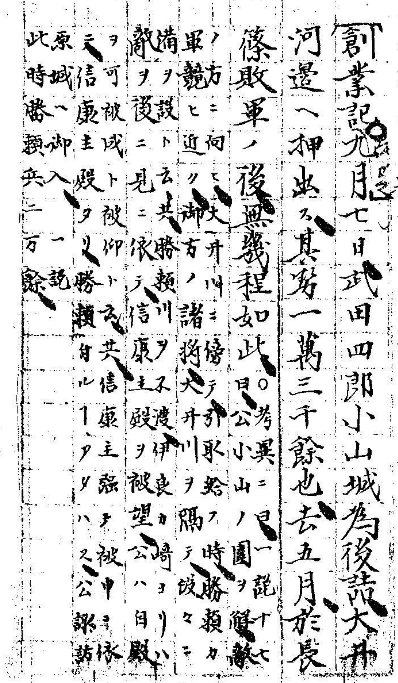 創業記九月七日武田四郎小山城為後詰大井
河邊ヘ押出ス其勢一萬三千餘也去五月於長
篠敗軍ノ後無幾程如此○考異ニ曰一説十七
日公小山ノ圍ヲ解敵
ノ方ニ向ヒ大井川ニ傍テ引取給フ時勝頼カ
軍競ヒ近ク御方ノ諸將大井川ヲ隔テ段々ニ
備ヲ設ト云共勝頼川ヲ不渡伊良カ崎ヨリハ
敵ヲ後ニ見ニ依テ信康主殿ヲ被望公ハ自殿
ヲ可被成ト被仰ト云共信康主強テ被申ニ依
テ信康主殿タリ勝頼付ルーアタハス公諏訪
原城ヘ御入 一説
此時勝頼兵二万餘